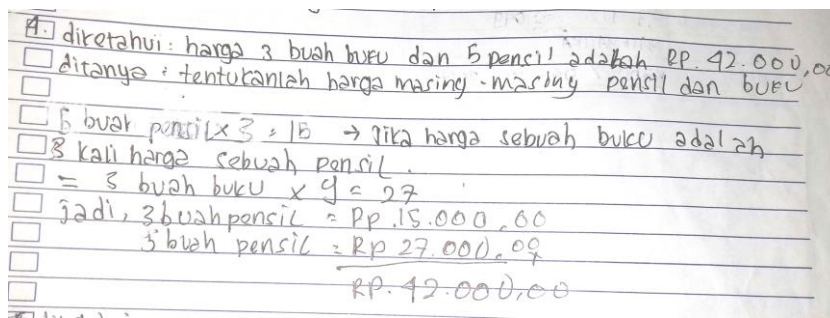 4. diketahui : harga 3 buah buku dan 5 pensil adalah Rp. 42.000,00
ditanya : tentukanlah harga masing-masing pensil dan buku
5 buah pensil x 3 = 15 → jika harga sebuah buku adalah
3 kali harga sebuah pensil.
= 3 buah buku x 9 = 27
jadi, 3 buah pensil = Rp .15.000,00
3 buah pensil = Rp 27.000,00
+
RP. 42.000,00